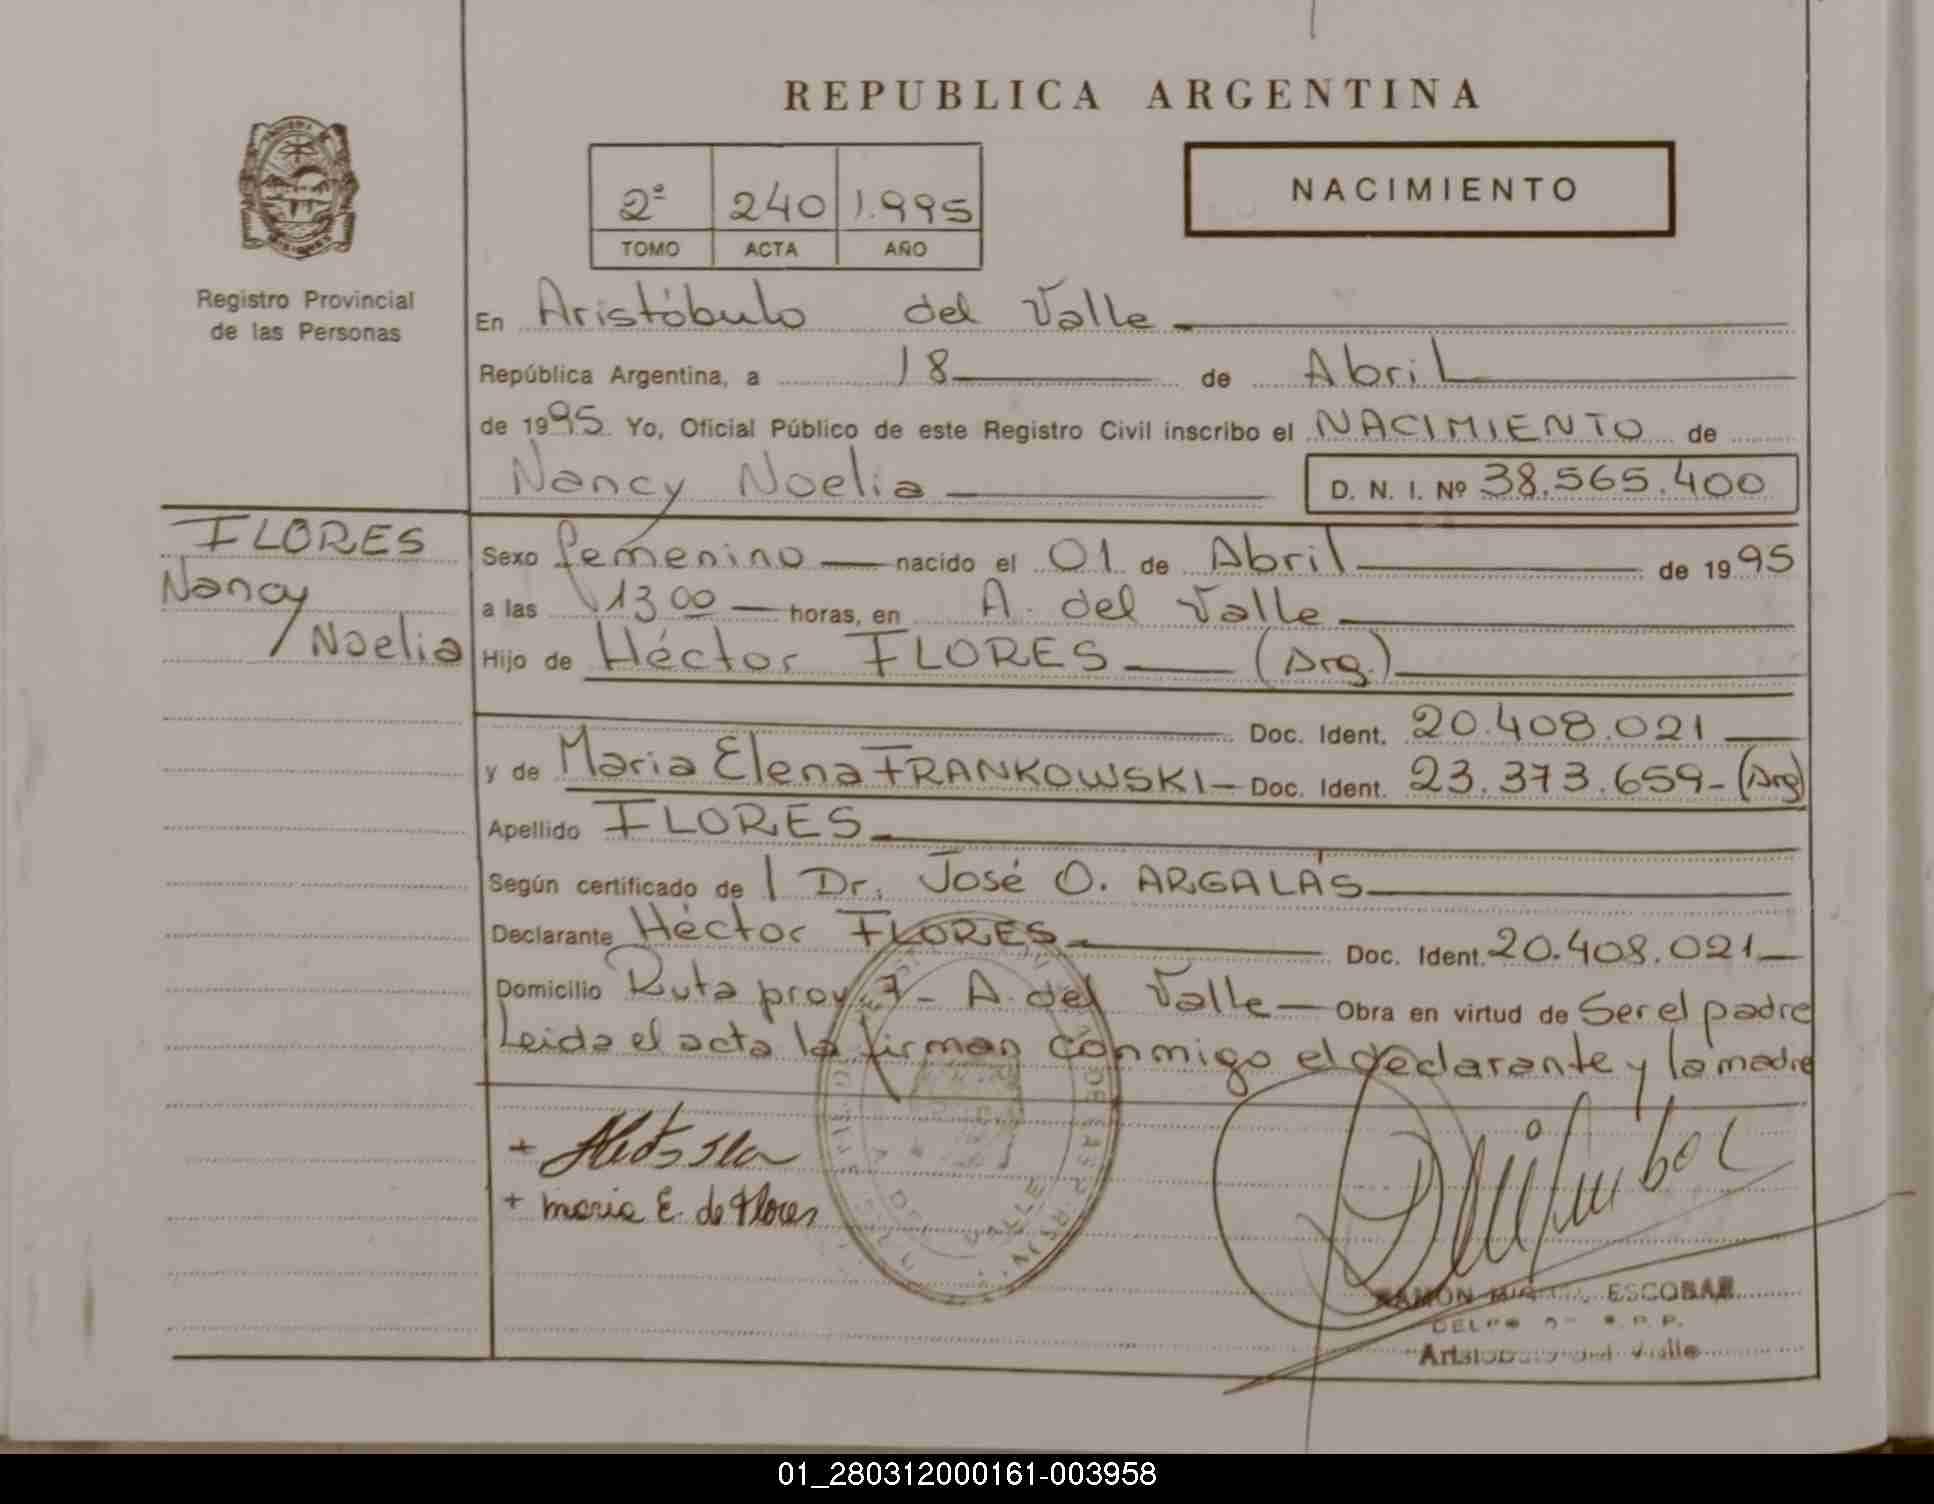 REPUBLICA ARGENTINA
2ª 240 1.995
TOMO ACTA AÑO
NACIMIENTO
Registro Provincial
de las Personas
En Aristóbulo del Valle
República Argentina, a 18 de Abril
de 1995. Yo, Oficial Público de este Registro Civil inscribo el NACIMIENTO de
Nancy Noelia D. N. I. Nº 38.565.400
FLORES
Nancy
Noelia
Sexo femenino nacido el 01 de Abril de 1995
a las 13 00 horas, en A. del Valle
Hijo de Héctor FLORES (Arg.)
Doc. Ident. 20.408.021
y de Maria Elena FRANKOWSKI Doc. Ident. 23.373.659 (Arg)
Apellido FLORES
Según certificado de Dr. José O. ARGALÁS
Declarante Héctor FLORES Doc. Ident. 20.408.021
Domicilio Ruta prov. 7 - A. del Valle Obra en virtud de Ser el padre
Leida el acta la firman conmigo el declarante y la madre
+ maria E. de Flores
RAMON ESCOBAR
Aristobulo del Valle
01_280312000161-003958